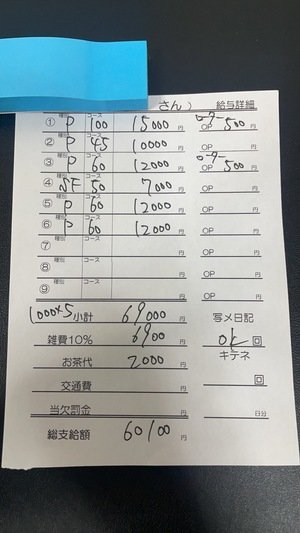 さん） 給与詳細
種別 コース ローター
① P 100 15000 円 OP 500 円
種別 コース
② P 45 10000 円 OP 円
種別 コース ローター
③ P 60 12000 円 OP 500 円
種別 コース
④ SF 50 7000 円 OP 円
種別 コース
⑤ P 60 12000 円 OP 円
種別 コース
⑥ P 60 12000 円 OP 円
種別 コース
⑦ 円 OP 円
種別 コース
⑧ 円 OP 円
種別 コース
⑨ 円 OP 円
1000×5 小計 69000 円 写メ日記
雑費10% 6900 円 ok 回
お茶代 2000 円 キテネ
交通費 円 回
当欠罰金 円 日分
総支給額 60100 円